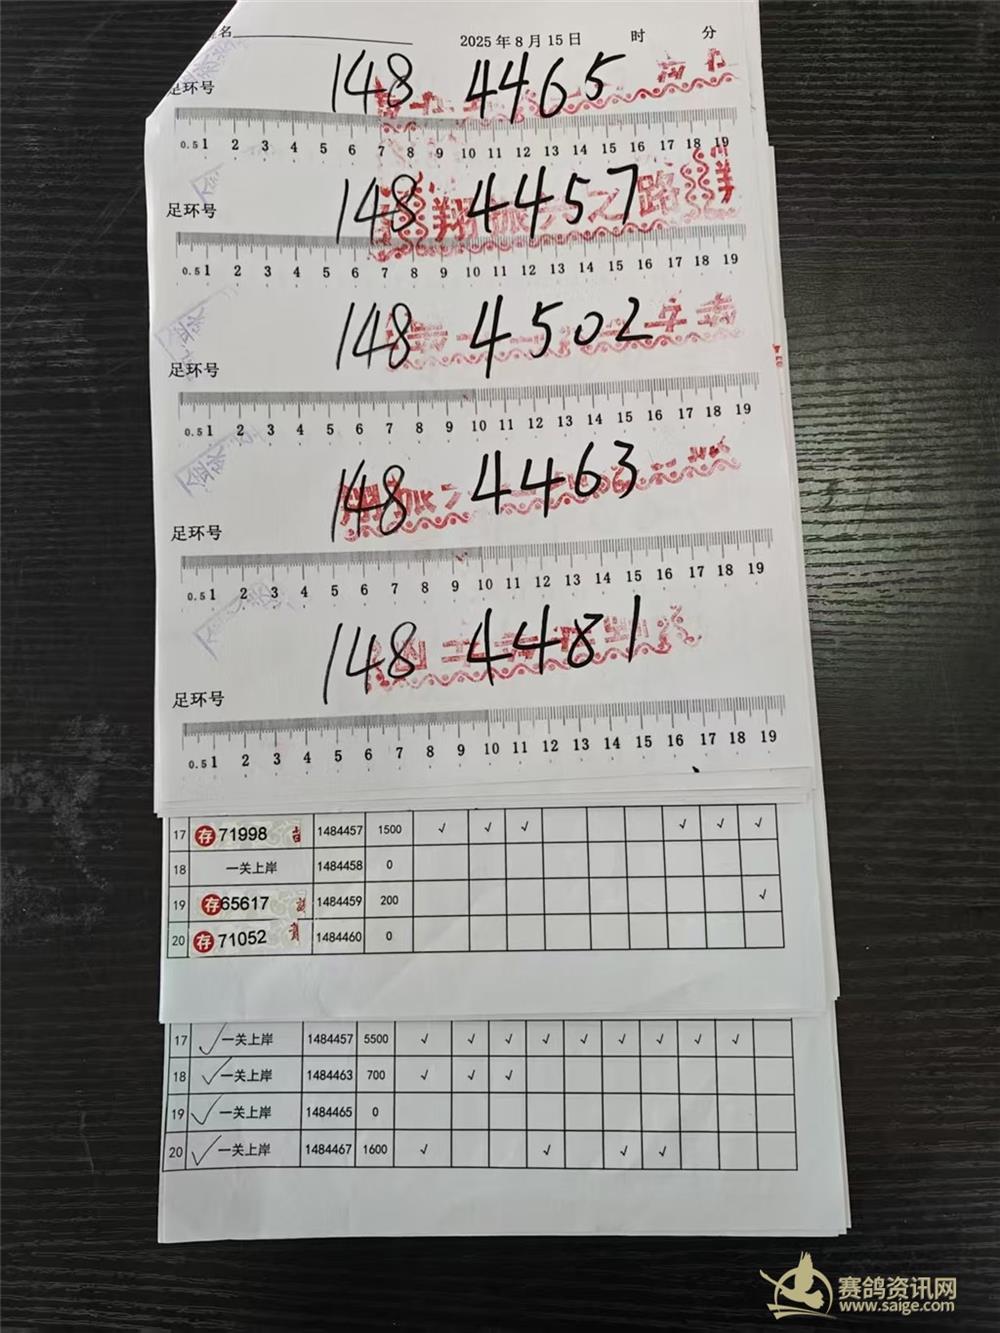 名 2025 年 8 月 15 日 时 分
足环号 148 4465
0.5 1 2 3 4 5 6 7 8 9 10 11 12 13 14 15 16 17 18 19
足环号 148 4457
0.5 1 2 3 4 5 6 7 8 9 10 11 12 13 14 15 16 17 18 19
足环号 148 4502
0.5 1 2 3 4 5 6 7 8 9 10 11 12 13 14 15 16 17 18 19
足环号 148 4463
0.5 1 2 3 4 5 6 7 8 9 10 11 12 13 14 15 16 17 18 19
足环号 148 4481
0.5 1 2 3 4 5 6 7 8 9 10 11 12 13 14 15 16 17 18 19
17 存 71998 1484457 1500 √ √ √ √ √ √
18 一关上岸 1484458 0
19 存 65617 1484459 200 √
20 存 71052 1484460 0
17 √ 一关上岸 1484457 5500 √ √ √ √ √ √ √ √ √
18 √ 一关上岸 1484463 700 √ √ √
19 √ 一关上岸 1484465 0
20 √ 一关上岸 1484467 1600 √ √ √ √
赛鸽资讯网
www.saige.com